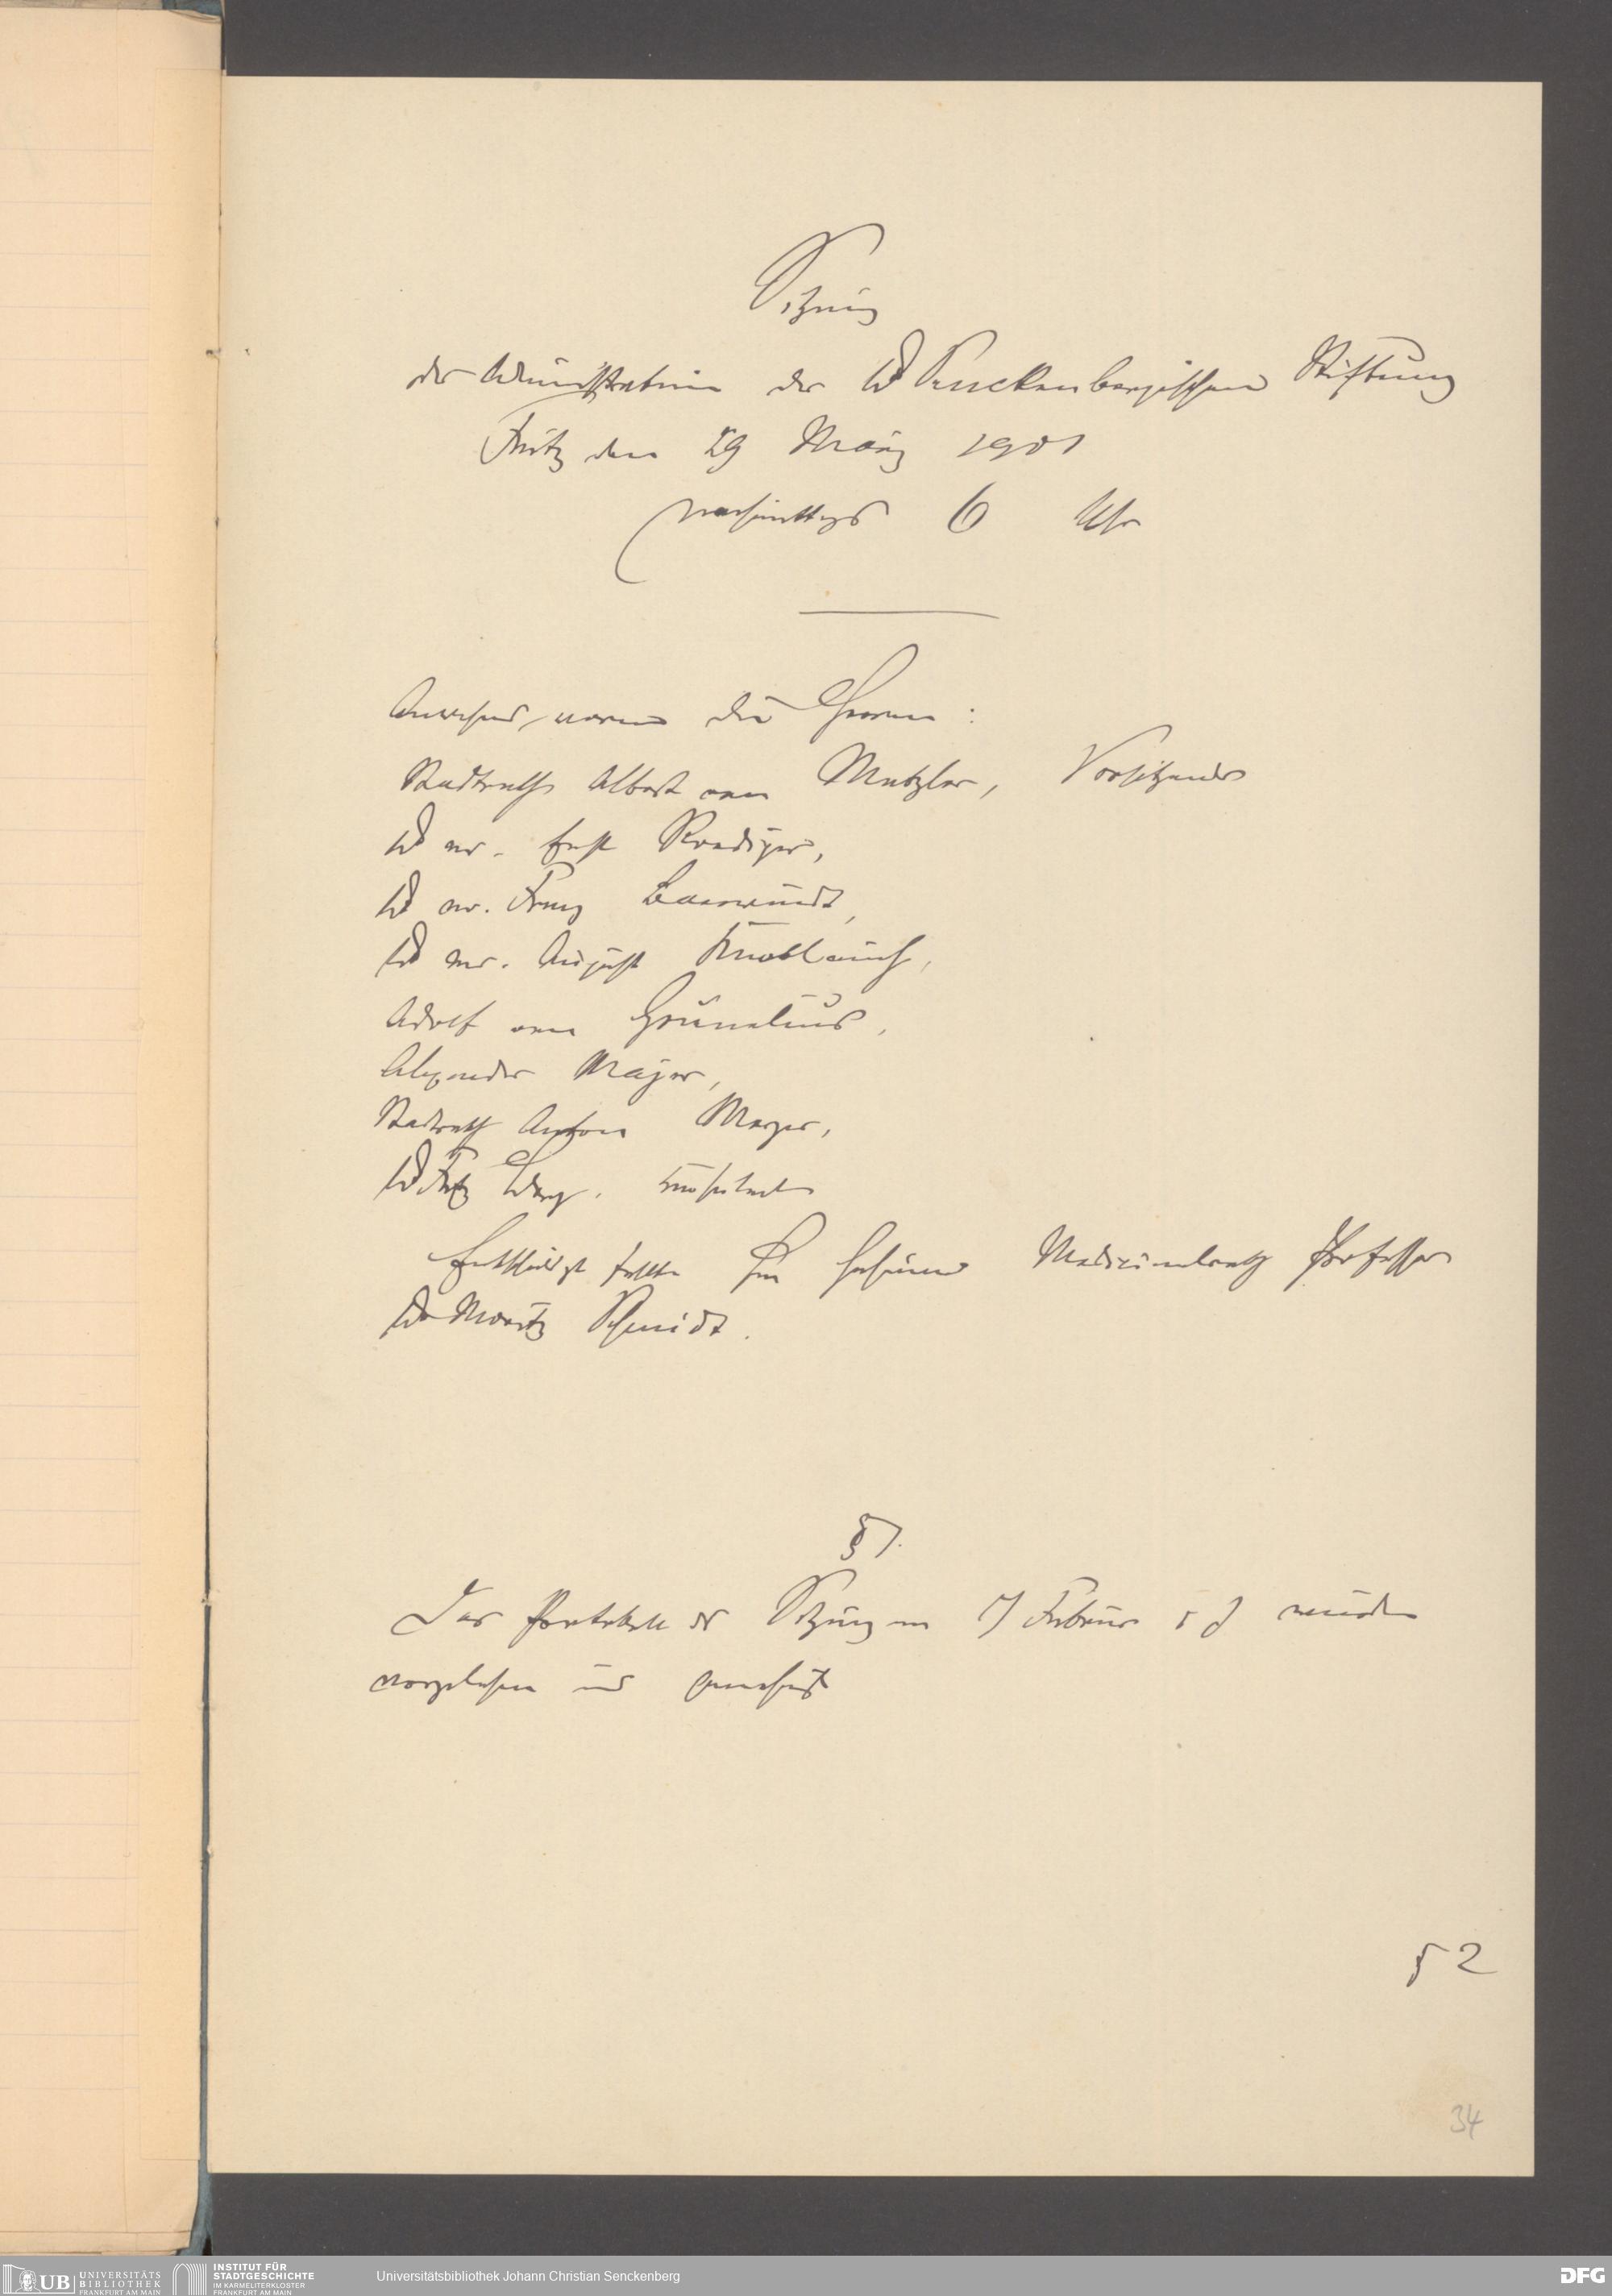 Sitzung
der Administration der Dr Senckenbergischen Stiftung
Freitag den 29 März 1901
nachmittags 6 Uhr
Anwesend waren die Herren:
Stadtrath Albert von Metzler, Vorsitzender
Dr med. Ernst Roediger,
Dr med. Franz Baerwindt,
Dr med. August Knoblauch,
Adolf von Grunelius,
Alexander Majer,
Stadtrath Anton Meyer,
Dr Fritz Berg. Konsulent
Entschuldigt fehlte Herr Geheimer Medicinalrath Professor
Dr Moritz Schmidt.
§ 1.
Das Protokoll der Sitzung vom Februar d J wurde
vorgelesen und genehmigt
§ 2
34
UB UNIVERSITÄTS BIBLIOTHEK FRANKFURT AM MAIN
INSTITUT FÜR STADTGESCHICHTE IM KARMELITERKLOSTER FRANKFURT AM MAIN
Universitätsbibliothek Johann Christian Senckenberg
DFG